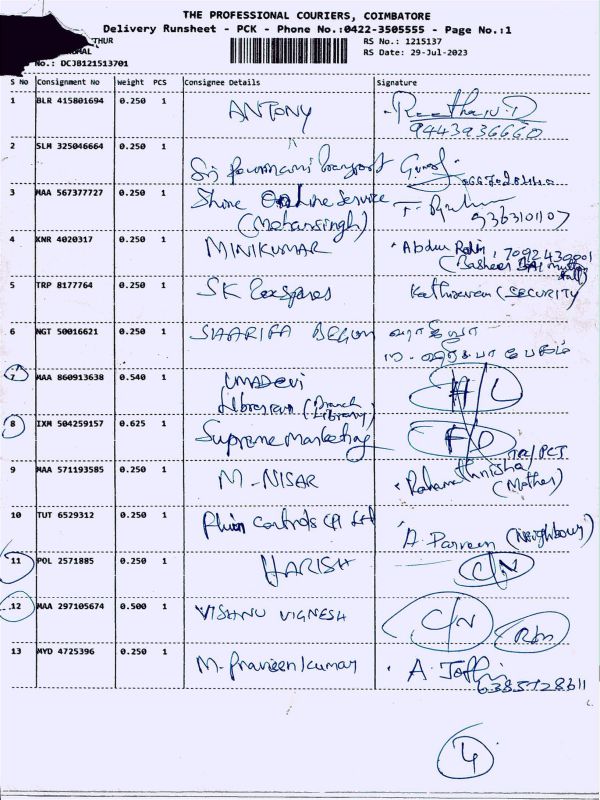 THE PROFESSIONAL COURIERS, COIMBATORE
Delivery Runsheet - PCK - Phone No.:0422-3505555 - Page No.:1
THUR
RS No.: 1215137
RS Date: 29-Jul-2023
No.: DCJB121513701
S No Consignment No Weight PCS Consignee Details Signature
1 BLR 415801694 0.250 1 ANTONY
9443936660
2 SLM 325046664 0.250 1 Sri
3 MAA 567377727 0.250 1 Shine Online Service
(Mohansingh) 9363101107
4 KNR 4020317 0.250 1 MINIKUMAR Abdur 7092439001
(Basheer
5 TRP 8177764 0.250 1 SK Kathiravan (SECURITY
6 NGT 50016621 0.250 1 SHARIFA BEGUM
7 MAA 860913638 0.540 1 UMADEVI H/L
Librarian (Branch Library)
8 IXM 504259157 0.625 1 Supreme Marketing F/D
9 MAA 571193585 0.250 1 M-NISAR Rahamathnisha
(Mother)
10 TUT 6529312 0.250 1 Controls A. Parveen (Neighbour)
11 POL 2571885 0.250 1 HARISH C/N
12 MAA 297105674 0.500 1 VISHNU VIGNESH C/N
13 MYD 4725396 0.250 1 M. Praveen kumar A. Jothi
6385728611
4